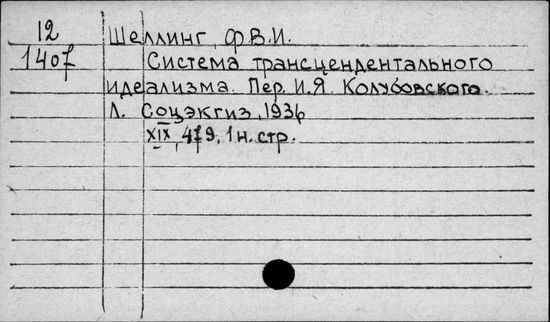 12
1407
Шеллинг, Ф.В.И.
Система трансцендентального
идеализма. Пер. И.Я. Колубовского.
Л. Соцэкгиз, 1936
XIX, 479, 1 н. стр.